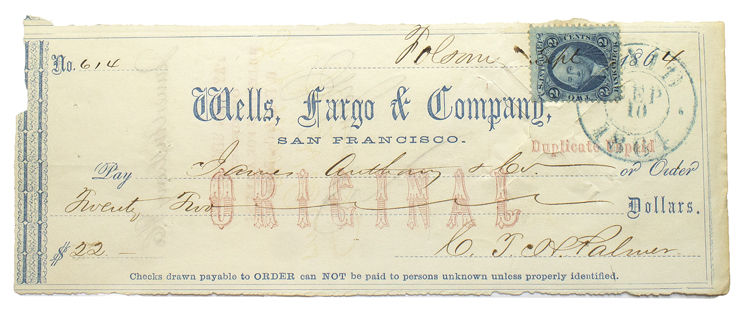 No. 614
Folsom Sept 1864
2 CENTS 2
TWO
SEP
10
Wells, Fargo & Company,
SAN FRANCISCO.
Duplicate Unpaid
Pay James Anthony & Co. or Order
ORIGINAL
Twenty Two Dollars.
$22 C. T. H. Palmer
Checks drawn payable to ORDER can NOT be paid to persons unknown unless properly identified.